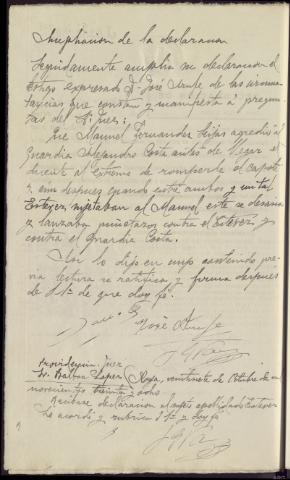 Ampliacion de la declaracion
Seguidamente amplia su declaracion el
testigo expresado D. José de las circuns
tancias que constan y manifiesta a pregun
tas del Sr. Juez:
Que Manuel Fernandez agredió al
Guardia Alejandro Costa antes de llegar el
dicente al extremo de romperle el capote
y aun despues cuando entre ambos y un tal
Esteyer sujetaban al Manuel este se desasia
y lanzaba puñetazos contra el Esteyer y
contra el Guardia Costa.
Asi lo dijo en cuyo contenido pre
via lectura se ratifica y firma despues
de S Sª de que doy fe.
José
Providencia, Juez
Sr. Balboa Lopez
veintisiete de Octubre de mil
novecientos treinta y ocho
Recibase declaracion al sujeto apellidado Esteyer
Lo acordó y rubrica S Sª y doy fe